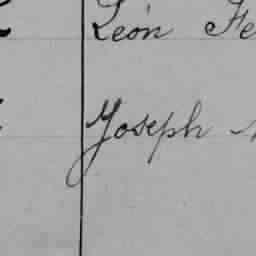 Léon Fe
Joseph